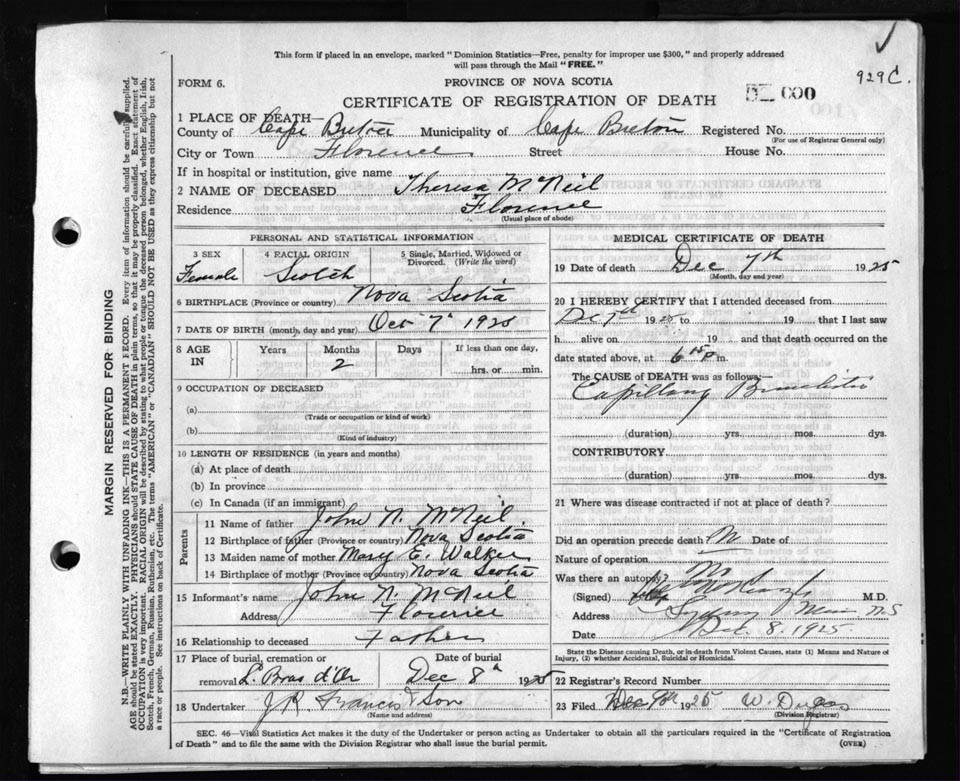 This form if placed in an envelope, marked "Dominion Statistics—Free, penalty for improper use $300," and properly addressed
will pass through the Mail "FREE."
929C.
FORM 6.
PROVINCE OF NOVA SCOTIA
CERTIFICATE OF REGISTRATION OF DEATH
000
1 PLACE OF DEATH—
County of Cape Breton Municipality of Cape Breton Registered No.
(For use of Registrar General only)
City or Town Florence Street House No.
If in hospital or institution, give name
2 NAME OF DECEASED Theresa McNeil
Residence Florence
(Usual place of abode)
PERSONAL AND STATISTICAL INFORMATION
3 SEX 4 RACIAL ORIGIN 5 Single, Married, Widowed or Divorced. (Write the word)
Female Scotch
6 BIRTHPLACE (Province or country) Nova Scotia
7 DATE OF BIRTH (month, day and year) Oct 7th 1925
8 AGE IN Years Months Days If less than one day,
2 hrs. or min.
9 OCCUPATION OF DECEASED
(a)
(Trade or occupation or kind of work)
(b)
(Kind of industry)
10 LENGTH OF RESIDENCE (in years and months)
(a) At place of death
(b) In province
(c) In Canada (if an immigrant)
Parents
11 Name of father John N. McNeil.
12 Birthplace of father (Province or country) Nova Scotia
13 Maiden name of mother Mary E. Walker
14 Birthplace of mother (Province or country) Nova Scotia
15 Informant's name John N. McNeil
Address Florence
16 Relationship to deceased Father
17 Place of burial, cremation or removal L. Bras d'Or Date of burial Dec 8th 1925
18 Undertaker J R Francis & Son
(Name and address)
MEDICAL CERTIFICATE OF DEATH
19 Date of death Dec 7th 1925
(Month, day and year)
20 I HEREBY CERTIFY that I attended deceased from
Dec 7d 1925 to 19 that I last saw
h alive on 19 and that death occurred on the
date stated above, at 6 15 P m.
The CAUSE of DEATH was as follows:
Capillary Bronchitis
(duration) yrs. mos. dys.
CONTRIBUTORY
(duration) yrs. mos. dys.
21 Where was disease contracted if not at place of death?
Did an operation precede death Date of
Nature of operation
Was there an autopsy? No
(Signed) M.D.
Address Sydney Mines N.S
Date Dec. 8. 1925
State the Disease causing Death, or in death from Violent Causes, state (1) Means and Nature of
Injury, (2) whether Accidental, Suicidal or Homicidal.
22 Registrar's Record Number
23 Filed Dec 9th 1925 W.
(Division Registrar)
SEC. 46—Vital Statistics Act makes it the duty of the Undertaker or person acting as Undertaker to obtain all the particulars required in the "Certificate of Registration
of Death" and to file the same with the Division Registrar who shall issue the burial permit.
(OVER)
MARGIN RESERVED FOR BINDING
N.B.—WRITE PLAINLY WITH UNFADING INK—THIS IS A PERMANENT RECORD. Every item of information should be carefully supplied.
AGE should be stated EXACTLY. PHYSICIANS should STATE CAUSE OF DEATH in plain terms, so that it may be properly classified. Exact statement of
OCCUPATION is very important. RACIAL ORIGIN will be described by stating to what people or tongue the deceased person belonged, whether English, Irish,
Scotch, French, German, Russian, Ruthenian, etc. The terms "AMERICAN" or "CANADIAN" SHOULD NOT BE USED as they express citizenship but not
a race or people. See instructions on back of Certificate.